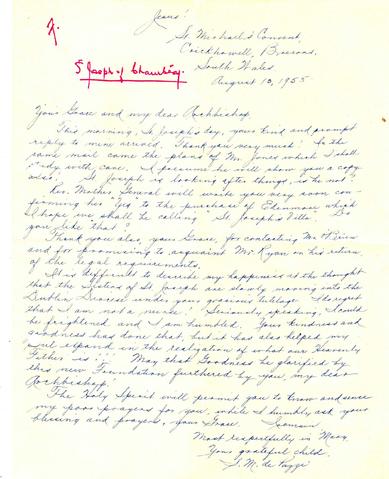 Jesus!
St. Michael's Convent,
Crickhowell, Brecons,
South Wales
August 10, 1955
St Joseph of Chambéry.
Your Grace and my dear Archbishop,
This morning, St Joseph's day, your kind and prompt
reply to mine arrived. Thank you very much! In the
same mail came the plans of Mr. Jones which I shall
study with care. I presume he will show you a copy
also. St Joseph is looking after things, is he not?
Rev. Mother General will write you very soon con-
firming her "yes" to the purchase of which
I hope we shall be calling "St Joseph's Villa". Do
you like that?
Thank you also, your Grace, for contacting Mr.
and for promising to acquaint Mr Ryan on his return
of the legal requirements.
It is difficult to describe my happiness at the thought
that the Sisters of St Joseph are slowly moving into the
Dublin Diocese under your gracious tutelage. I forget
that I am not a Seriously speaking, I could
be frightened and I am humbled. Your kindness and
goodness has done that, but it has also helped my
soul expand in the realization of what our Heavenly
Father is!!! May that Goodness be glorified by
this new Foundation furthered by you, my dear
Archbishop!
The Holy Spirit will prompt you to know and sense
my poor prayers for you, while I humbly ask your
blessing and prayers, your Grace. I remain
Most respectfully in Mary
Your grateful child,
S. M. de Pazzi